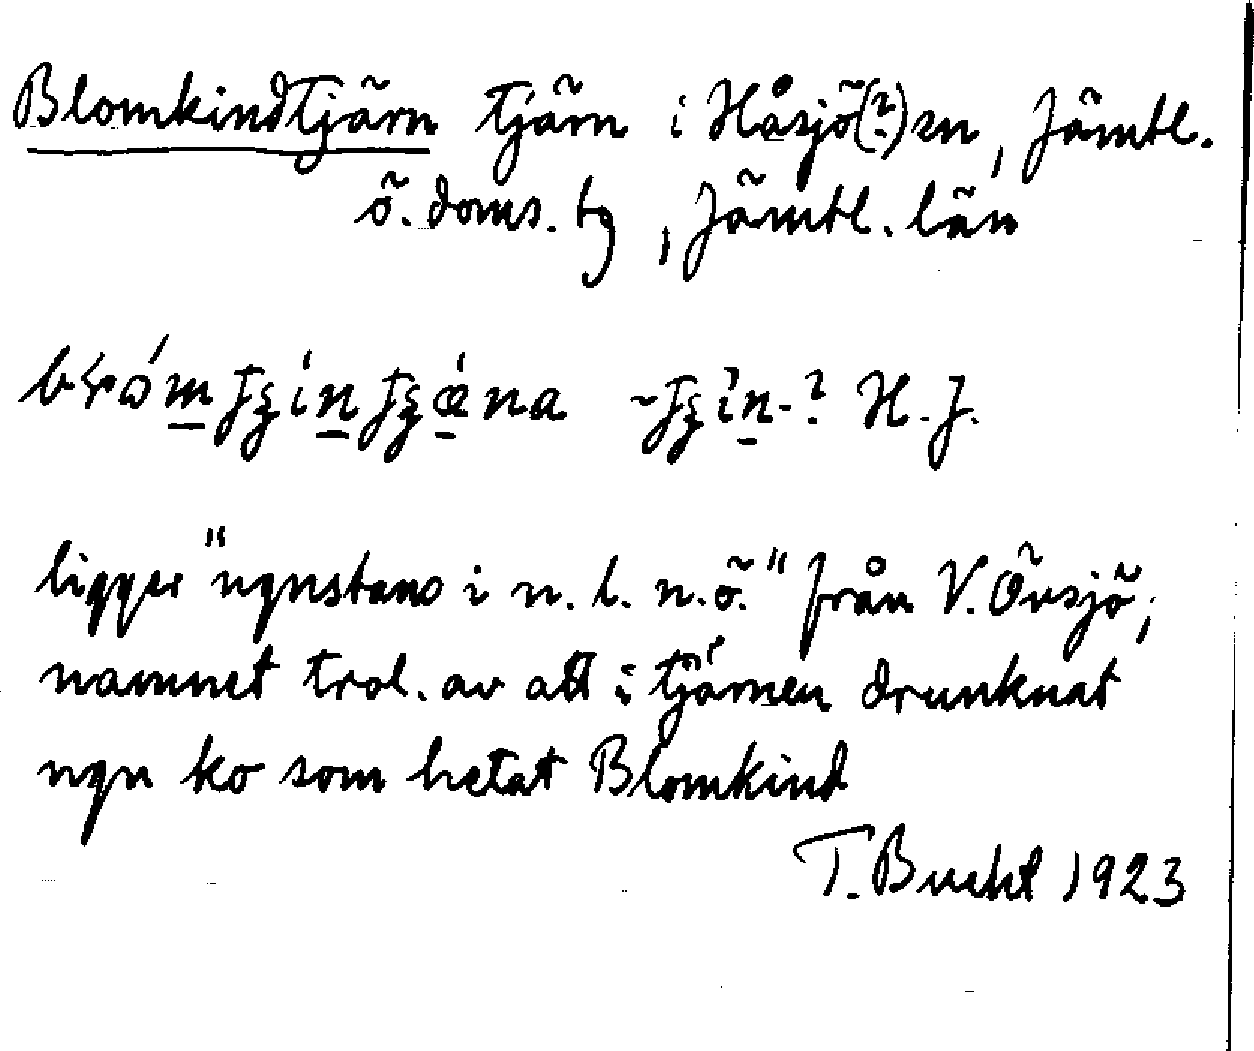 Blomkindtjärn tjärn i Håsjö(?)sn, Jämtl.
ö. doms. tg, Jämtl. län
H. J.
ligger "ngnstans i n. l. n.ö." från V. Övsjö;
namnet trol. av att i tjärnen drunknat
ngn ko som hetat Blomkind
T. Bucht 1923